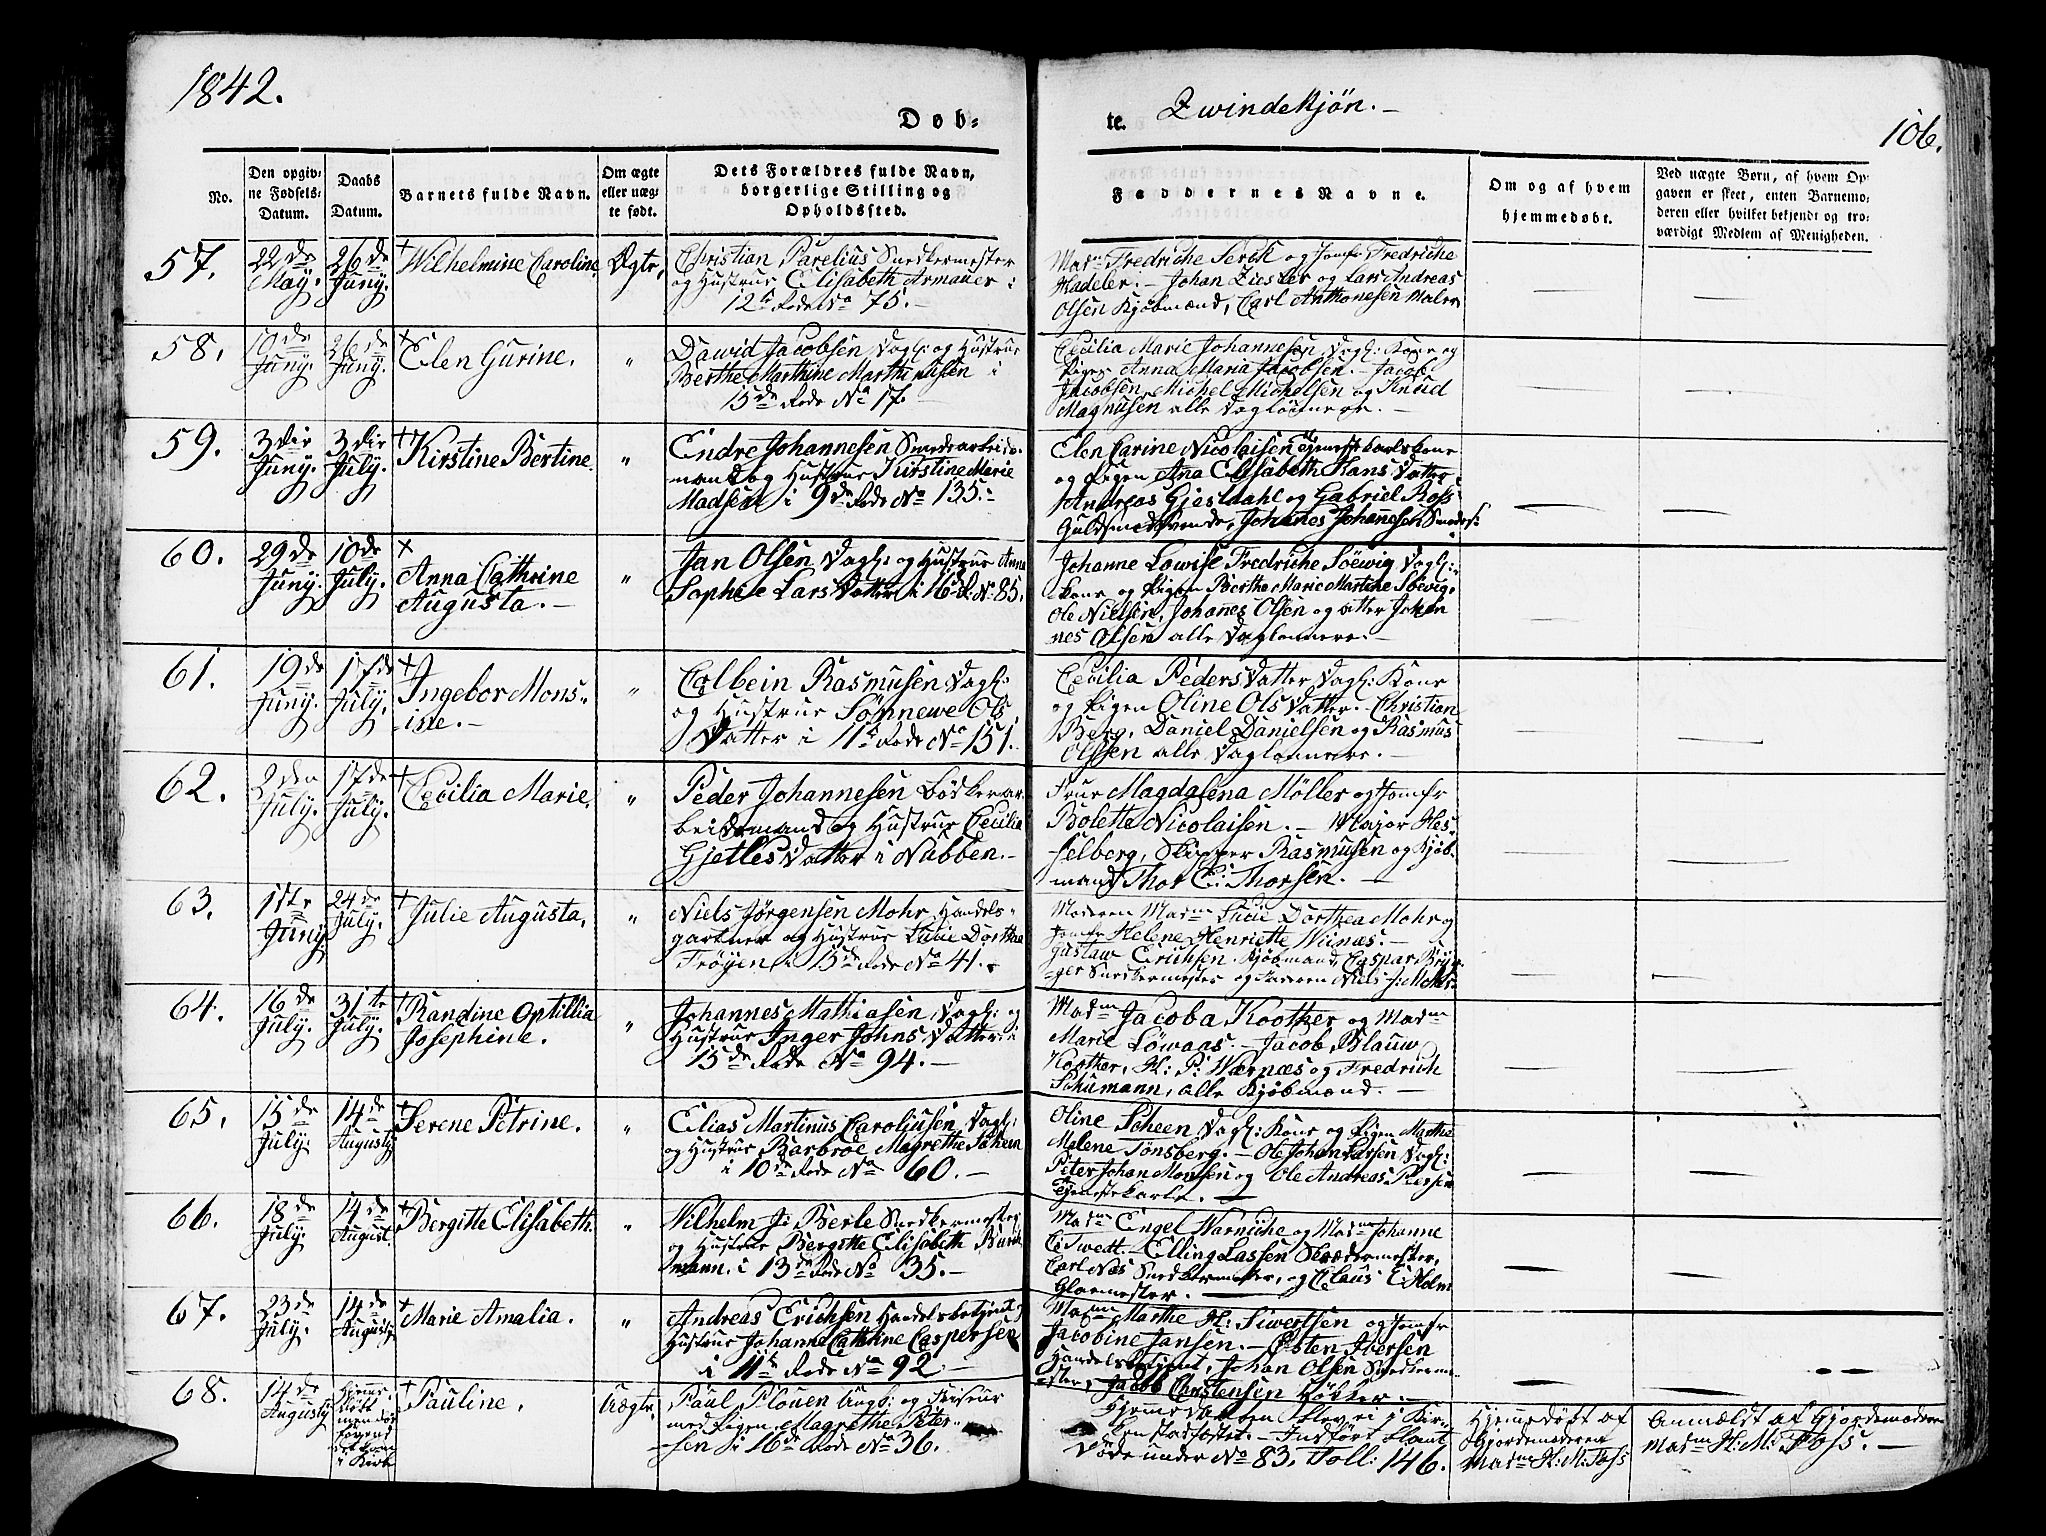 1842.
Døb-
te.
Qvindekjøn.-
106.
No.
Den opgiv-
ne Fødsels-
Datum.
Daabs
Datum.
Barnets fulde Navn.
Om ægte
eller uæg-
te født.
Dets Forældres fulde Navn,
borgerlige Stilling og
Opholdssted.
Faddernes Navne.
Om og af hvem
hjemmedøbt.
Ved uægte Børn, af hvem Op-
gaven er skeet, enten Barnemo-
deren eller hvilket bekjendt og tro-
værdigt Medlem af Menigheden.
57.
22de
May.
26de
Juny.
Wilhelmine Caroline.
Ægte,
Christian Parelius Snedkermester
og Hustrue Elisabeth Armauer i
12te Rode No 75.-
Madm Fredriche Serck og Jomfr Fredriche
Madeler.- Johan Ziesler og Lars Andreas
Olsen Kjøbmænd, Carl Anthonesen Maler
58.
10de
Juny.
26de
Juny.
Elen Gurine.
"
Dawid Jacobsen Dagl: og Hustrue
Berthe Marthine Marthinusen i
15de Rode No 17.
Cecilia Marie Johannesen, Dagl: Kone og
Pigen Anna Maria Jacobsen.- Jacob
Jacobsen, Michel Michelsen og Knud
Magnusen alle Daglønnere.-
59.
3die
Juny.
3die
July.
Kirstine Bertine.
"
Endre Johannesen Smedearbeids-
mand og Hustrue Kirstine Marie
Madsen i 9de Rode No 135.-
Elen Carine Nicolaisen Tjenestekarls kone
og Pigen Ana Elisabeth Hans Datter
Andreas Gjesdahl og Gabriel Ross
Guldsmedsvende, Johanes Johannesen Smedes:
60.
29de
Juny.
10de
July.
Anna Cathrine
Augusta.-
"
Jan Olsen Dagl: og Hustrue Anna
Sophie Lars Datter i 16d R: No 85.
Johanne Lowise Fredriche Söewig Dagl:
kone og Pigen Berthe Marie Martine Söewig.
Ole Nielsen, Johanes Olsen og atter Johan
nes Olsen alle Daglønnere.-
61.
19de
Juny.
17de
July.
Ingebor Mons-
ine.-
"
Colbein Rasmusen Dagl:
og Hustrue Sønnewe Ols
Datter i 11te Rode No 151.-
Cecilia Peders Datter Dagl: Kone
og Pigen Oline Ols Datter.- Christian
Berg, Daniel Danielsen og Rasmus
Olssen alle Daglønnere.-
62.
2den
July.
17de
July.
Cecilia Marie.
"
Peder Johannesen Bødkerar-
beidsmand og Hustrue Cecilia
Gjetles Datter i Nabben.-
Frue Magdalena Møller og Jomfr
Bolette Nicolaisen.- Major Hes-
selberg, Skipper Rasmusen og Kjøb-
mand Thor C: Thorsen.-
63.
1ste
Juny
24de
July.
Julie Augusta,
"
Niels Jørgensen Mohr Handels-
gartner og Hustrue Lucie Dorthea
Trøyen i 15de Rode No 41.-
Moderen Madm Lucie Dorthea Mohr og
Jomfr Helene Henriette Wiinæs.-
Gustaw Erichsen Kjøbmand, Caspar Bry-
ger Snedkermester og Faderen Niels J: Mohr
64.
16de
July.
31te
July.
Randine Optillia
Josephine.
"
Johannes Mathiasen, Dagl: og
Hustrue Inger Johns Datter i
15de Rode No 94.-
Madm Jacoba Kootker og Madm
Marie Löwaas.- Jacob Blauw
Kootker, H: P: Wærnæs og Fredrich
Schumann, alle Kjøbmænd.-
65.
15de
July.
14de
Augusty
Serene Petrine.
"
Elias Martinus Caroliusen, Dagl:
og Hustrue Barbroe Magrethe Scheen
i 10de Rode No 60.-
Oline Scheen Dagl: Kone og Pigen Marthe
Malene Tönsberg.- Ole Johan Larsen Dagl:
Peter Johan Monsen og Ole Andreas Persen
Tjenestekarle.-
66.
18de
July.
14de
August.
Bergitte Elisabeth.
"
Wilhelm J: Berle Snedkermester
og Hustrue Bergitte Elisabeth Bur
mann. i 13de Rode No 35.-
Madm Engel Warniche og Madm Johanne
C: Twedt.- Elling Lassen Skrædermester,
Carl Næs Snedkermester, og Claus C: Holm
Glarmester.
67.
23de
July.
14de
Augusty
Marie Amalia.
"
Andreas Erichsen Handelsbetjent og
Hustrue Johanne Cathrine Caspersen
i 11te Rode No 92.-
Madm Marthe H: Siwertsen og Jomfr
Jacobine Jansen.- Østen Iversen
Handelsbetjent, Johan Olsen Snedkerme-
ster, Jacob Carstensen Høkker.-
68.
14de
Augusty
Hjemme
døbt
men døde
førend
det kom
i Kirke
Pauline.
Uægte,
Paul Plouen Ungk: og Frisøur
med Pigen Magrethe Peter-
sen i 16de Rode No 36.
Hjemmedaaben blev ei i Kir-
ken stadfæstet.- Indført blant
Døde under No 83, Foll: 146.
Hjemmedøbt af
Gjordemoderen
Madm H: M: Foss
Anmældt af Gjordemoderen
Madm H: M: Foss.-